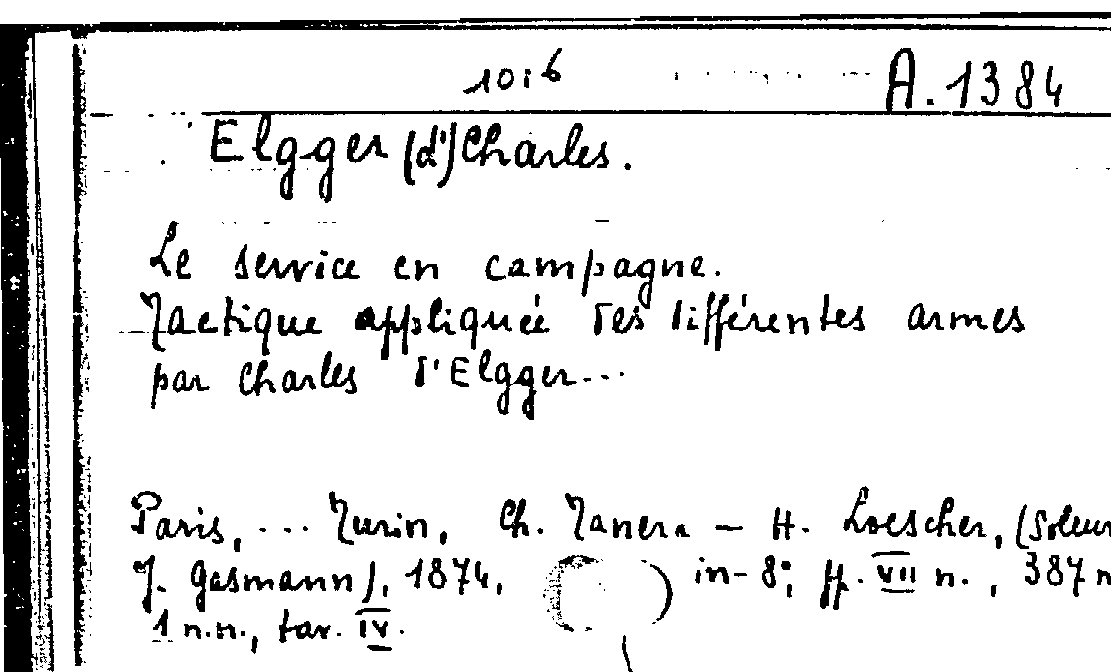 1016 A.1384
Elgger (d') Charles.
Le service en campagne.
Tactique appliquée des différentes armes
par Charles d'Elgger...
Paris, ... Turin, Ch. Tanera - H. Loescher, (Soleur
J. Gasmann), 1874, in-8°, ff. VII n., 387 n
1 n.n., tav. IV.